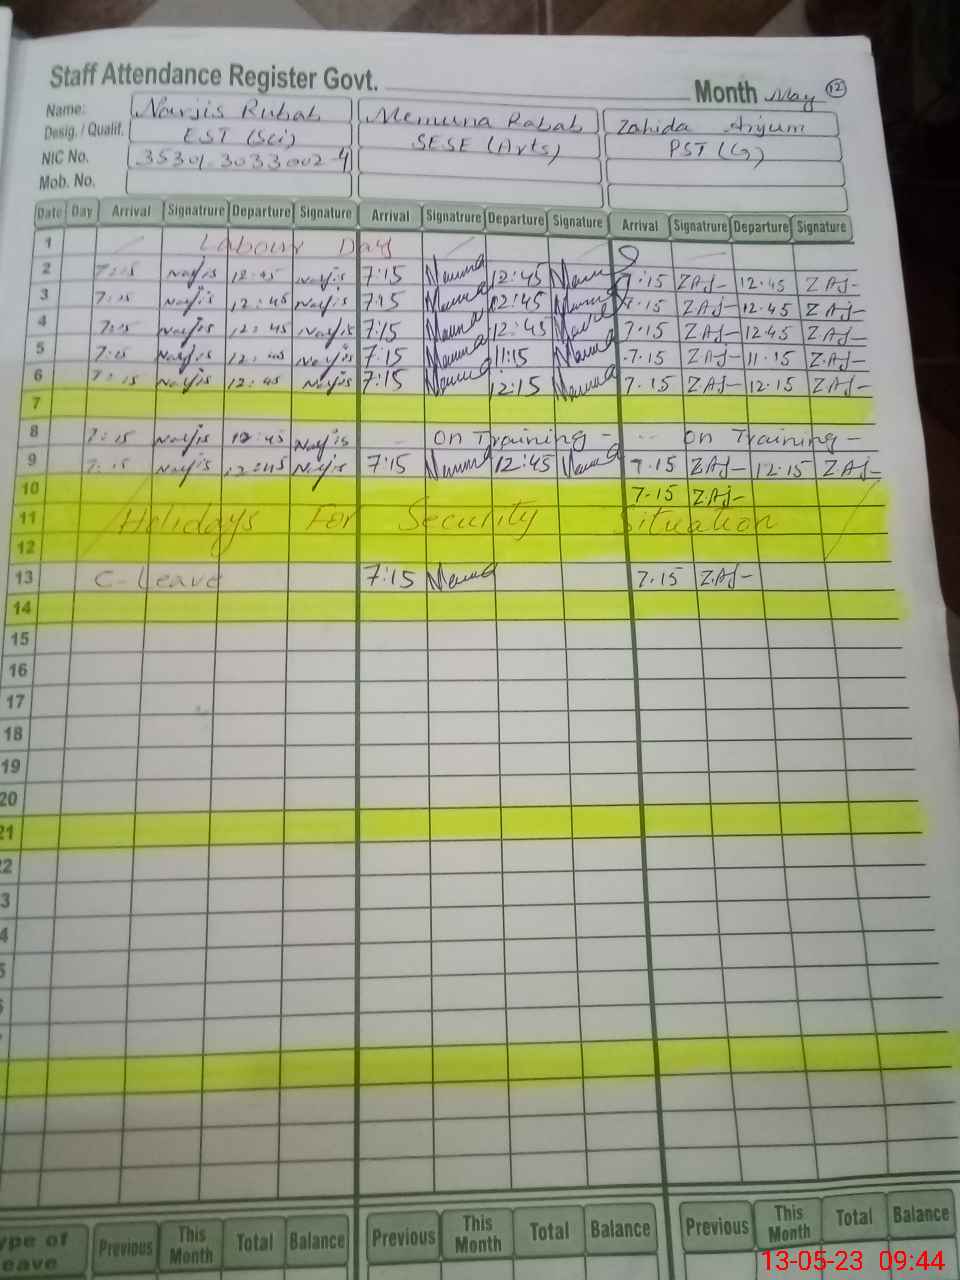 Staff Attendance Register Govt.
Month May 12
Name: Narjis Rubab Memuna Rabab Zahida Anjum
Desig. / Qualif. EST (Sci) SESE (Arts) PST (G)
NIC No. 35301 3033002-4
Mob. No.
Date Day Arrival Signatrure Departure Signature Arrival Signatrure Departure Signature Arrival Signatrure Departure Signature
1 Labour Day
2 7:15 Narjis 12:45 Narjis 7:15 Memuna 12:45 Memuna 7.15 ZAJ- 12.45 ZAJ-
3 7:15 Narjis 12:45 Narjis 7:15 Memuna 12:45 Memuna 7.15 ZAJ- 12.45 ZAJ-
4 7:15 Narjis 12:45 Narjis 7:15 Memuna 12:45 Memuna 7.15 ZAJ- 12.45 ZAJ-
5 7:15 Narjis 12:45 Narjis 7:15 Memuna 11:15 Memuna 7.15 ZAJ- 11.15 ZAJ-
6 7:15 Narjis 12:45 Narjis 7:15 Memuna 12:15 Memuna 7.15 ZAJ- 12.15 ZAJ-
7
8 7:15 Narjis 12:45 Narjis - on Training - -- on Training -
9 7:15 Narjis 12:45 Narjis 7:15 Memuna 12:45 Memuna 7.15 ZAJ- 12.15 ZAJ-
10 7.15 ZAJ-
11 Holidays For Security Situation
12
13 C-Leave 7:15 Memuna 7.15 ZAJ-
14
15
16
17
18
19
20
21
22
3
4
5
Previous This Month Total Balance Previous This Month Total Balance Previous This Month Total Balance
13-05-23 09:44